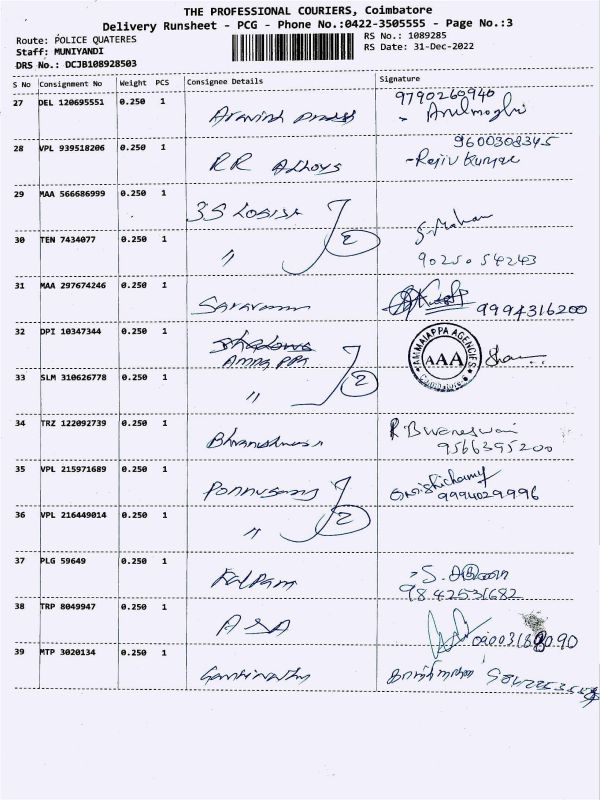 THE PROFESSIONAL COURIERS, Coimbatore
Delivery Runsheet - PCG - Phone No.:0422-3505555 - Page No.:3
Route: POLICE QUATERES
RS No.: 1089285
Staff: MUNIYANDI
RS Date: 31-Dec-2022
DRS No.: DCJB108928503
S No Consignment No Weight PCS Consignee Details Signature
27 DEL 120695551 0.250 1 Aravind 9790260940
28 VPL 939518206 0.250 1 RR Alloys 9600308345
- Rajiv Kumar
29 MAA 566686999 0.250 1 3S S. Mohan
30 TEN 7434077 0.250 1 〃 2 90250 54243
31 MAA 297674246 0.250 1 Saravanan 9994316200
32 DPI 10347344 0.250 1
AMMAIAPPA AGENCIES AAA
33 SLM 310626778 0.250 1 〃 2
34 TRZ 122092739 0.250 1 R Bwaneswari
9566395200
35 VPL 215971689 0.250 1 Ponnusamy
9994029996
36 VPL 216449014 0.250 1 〃 2
37 PLG 59649 0.250 1 Kalpam
9842531682
38 TRP 8049947 0.250 1 ASA
39 MTP 3020134 0.250 1